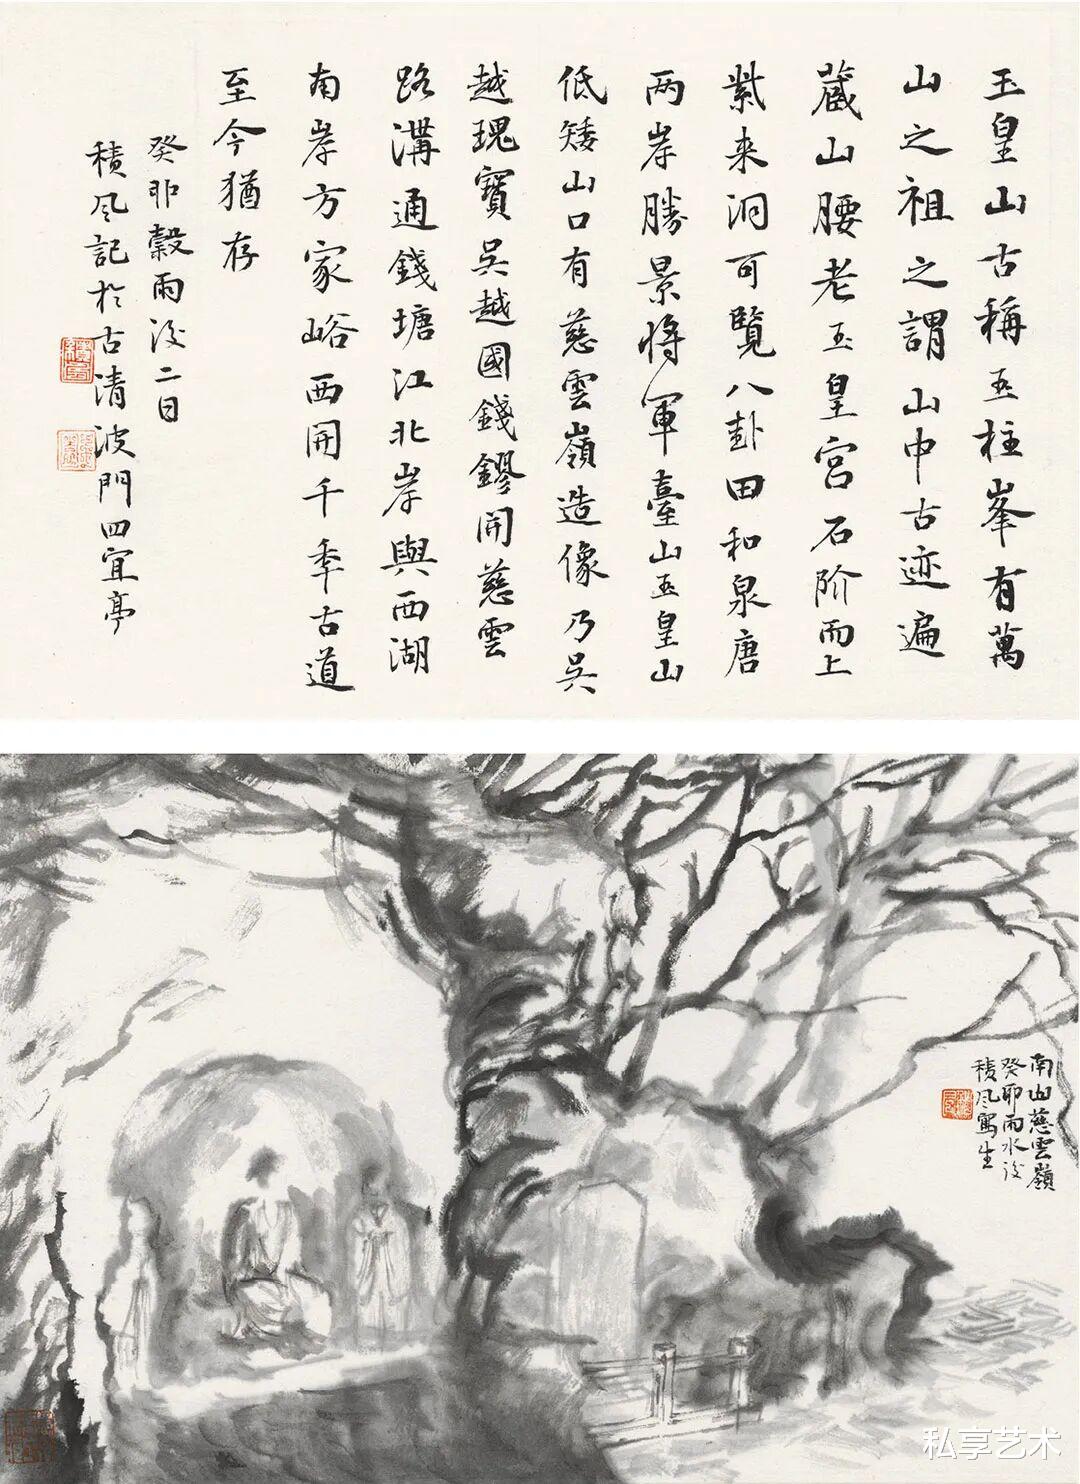 玉皇山古稱玉柱峯有萬
山之祖之謂山中古迹遍
藏山腰老玉皇宫石阶而上
紫来洞可覽八卦田和泉唐
两岸勝景将軍臺山玉皇山
低矮山口有慈雲嶺造像乃吴
越瑰寶吴越國錢鏐開慈雲
路溝通錢塘江北岸與西湖
南岸方家峪西開千年古道
至今猶存
癸卯穀雨後二日
積风記於古清波門四宜亭
南山慈雲嶺
癸卯雨水後
積风寫生
私享艺术